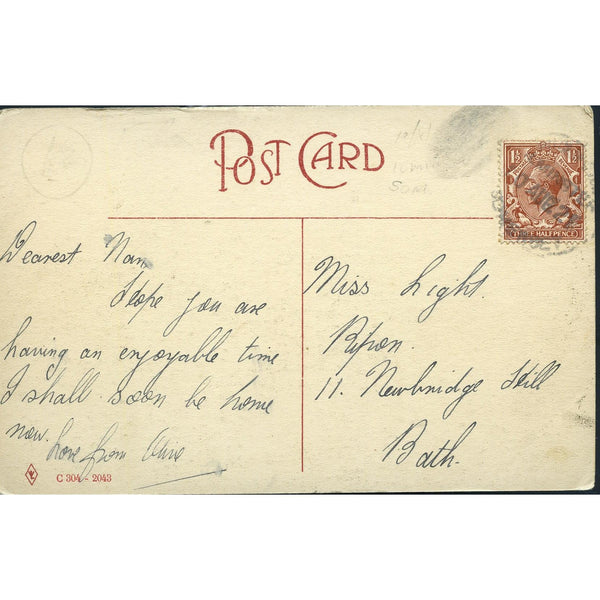 POST CARD
1½ 1½
THREE HALFPENCE
Dearest Nan
Hope you are
having an enjoyable time
I shall soon be home
now.
Love from Olive
C 304 - 2043
Miss Light.
Ripon.
11. Newbridge Hill
Bath.